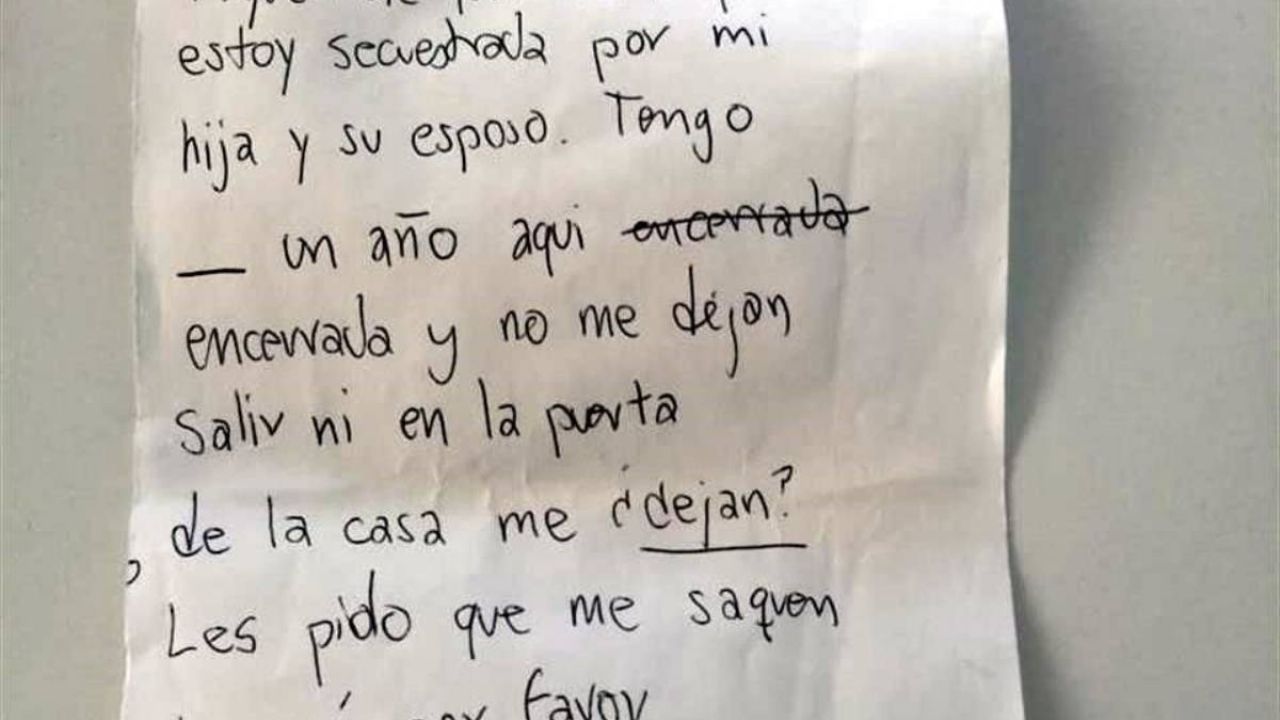 estoy secuestrada por mi
hija y su esposo. Tengo
un año aqui encerrada
encerrada y no me dejan
Salir ni en la puerta
de la casa me ¿dejan?
Les pido que me saquen
por favor